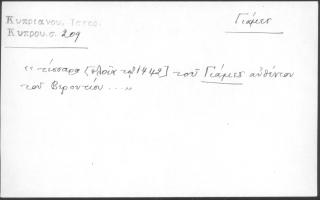 Κυπριανου, Ιστορ.
Κυπρου.σ. 209
Γιάμεs
« τέσσαρα [πλοῖα τῷ 1442] τοῦ Γιάμεs αὐθέντου
τοῦ Βεροντίου ... »